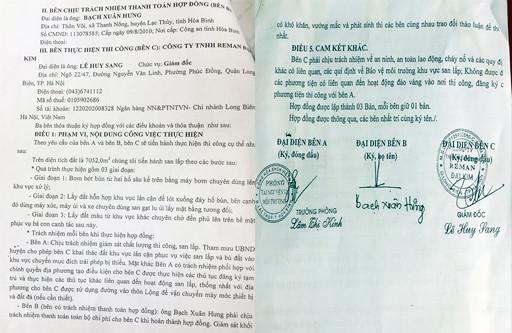 II. BÊN CHỊU TRÁCH NHIỆM THANH TOÁN HỢP ĐỒNG (BÊN
Đại diện là ông: BẠCH XUÂN HƯNG
Địa chỉ: Thôn Vôi, xã Thanh Nông, huyện Lạc Thủy, tỉnh Hòa Bình
Số CMND: 113078585; Cấp ngày 09/8/2010; Nơi cấp: Công an tỉnh Hòa Bình
Điện thoại:
III. BÊN THỰC HIỆN THI CÔNG (BÊN C): CÔNG TY TNHH REMAN Đ
KIM
Đại diện là ông: LÊ HUY SANG Chức vụ: Giám đốc
Địa chỉ: Ngõ 22/47, Đường Nguyễn Văn Linh, Phường Phúc Đồng, Quận Long
Biên, TP. Hà Nội
Điện thoại: (043)6741112
Mã số thuế: 0105902686
Số tài khoản: 1220202008328 Ngân hàng NN&PTNTVN- Chi nhánh Long Biên
Hà Nội.
Ba bên thỏa thuận ký hợp đồng với các điều khoản và thỏa thuận như sau:
ĐIỀU 1: PHẠM VI, NỘI DUNG CÔNG VIỆC THỰC HIỆN
Theo yêu cầu của bên A và bên B, bên C sẽ tiến hành thực hiện thi công cụ thể như
sau:
Trên diện tích đất là 7052,0m² chúng tôi tiến hành san lấp theo các bước sau:
* Quá trình thực hiện gồm 03 giai đoạn:
- Giai đoạn 1: Bơm bớt bùn từ hai hố sâu kể trên bằng máy bơm chuyên dùng lên
khu vực xử lý;
- Giai đoạn 2: Lấy đất hỗn hợp khu vực lân cận để lót xuống đáy hồ bùn, bên cạnh
đó dùng máy xúc, máy ủi và xe chuyên dùng san gạt lu ủi lấy mặt bằng tương đối;
- Giai đoạn 3: Lấy đất màu từ khu vực khác chuyên chở đến phủ lên trên bề mặt
phục vụ bà con canh tác sau này.
* Trách nhiệm mỗi bên khi thực hiện hợp đồng:
- Bên A: Chịu trách nhiệm giám sát chất lượng thi công, san lấp. Tham mưu UBND
huyện cho phép bên C khai thác đất khu vực lân cận phục vụ việc san lấp và bố đất vào
khu vực chuyển mục đích trái phép bị thiếu. Mặt khác Bên A có trách nhiệm phối hợp với
chính quyền địa phương tạo điều kiện cho bên C được thực hiện các thủ tục đăng ký tạm
trú và thực hiện các thủ tục khác liên quan đến hoạt động san lấp, thống nhất với địa
phương cho bên C được sử dụng đường vào thôn Lộng để vận chuyển máy móc thiết bị
và đất đá (nếu cần thiết).
- Bên B (bên có trách nhiệm thanh toán hợp đồng): ông Bạch Xuân Hưng phải chịu
trách nhiệm thanh toán toàn bộ chi phí cho bên C khi hoàn thành hợp đồng. Giám sát khối
có khó khăn, vướng mắc và phát sinh thì các bên cùng nhau trao đổi thảo luận để th
nhất.
ĐIỀU 5. CAM KẾT KHÁC.
Bên C phải chịu trách nhiệm về an ninh, an toàn lao động, cháy nổ và các quy đị
khác có liên quan, các qui định về Bảo vệ môi trường khu vực san lấp; Không được đ
các phương tiện có liên quan đến hoạt động đào vàng vào nơi thi công, đăng ký c
phương tiện thi công với bên A.
Hợp đồng được lập thành 03 Bản, mỗi bên giữ 01 bản.
Hợp đồng được thông qua, các bên nhất trí cùng ký tên./.
ĐẠI DIỆN BÊN A ĐẠI DIỆN BÊN B ĐẠI DIỆN BÊN C
(Ký, đóng dấu) (Ký, họ tên) (Ký, đóng dấu)
PHÒNG
TÀI NGUYÊN VÀ
MÔI TRƯỜNG
REMAN
ĐẠI KIM
TRƯỞNG PHÒNG
Lâm Thị Kính
Bạch Xuân Hưng
GIÁM ĐỐC
Lê Huy Sang